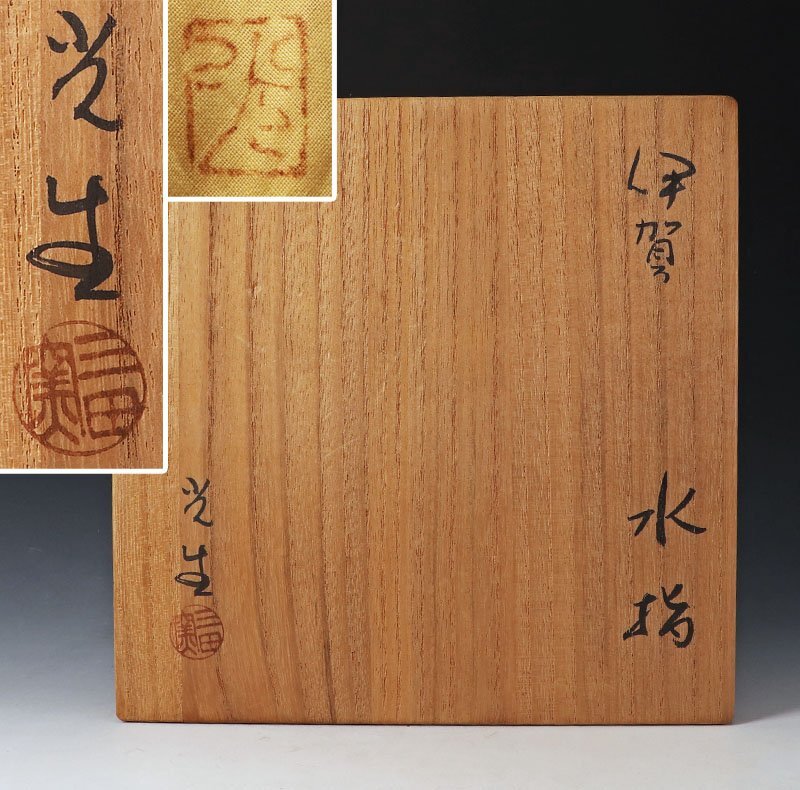 伊賀
水指
光生
光生